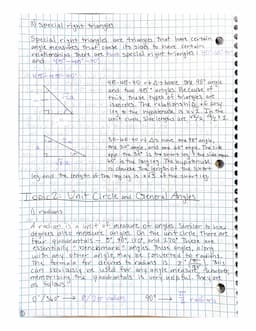 B) special right triangles
Special right triangles are triangles that have certain
angle measures that cause its sides to have certain
relationships. There are two special right triangles: 30-60-90
and 45-45-90.
45-45-90
45-45-90 rt Δs have one 90° angle
and two 45° angles. Because of
this, these types of triangles are
isosceles. The relationship of any
leg to the hypotenuse is x√2. In the
unit circle, side lengths are
30-60-90 rt Δs have one 90° angle,
one 30° angle, and one 60° angle. The side
opp. the 30° is the short leg, the side opp.
60° is the long leg. The hypotenuse
is double the length of the short
leg and the length of the long leg is x√3 of the short leg.
Topic 2: Unit Circle and General Angles
i) radians
A radian is a unit of measure of angles. Similar to how
degrees also measure angles. On the unit circle, there are
four quadrantals - 0°, 90°, 180°, and 270°. These are
essentially "benchmark" angles. These angles, along
with any other angle, may be converted to radians.
The formula for degrees to radians is This
can be used for any angle measure, however
memorizing the quadrantals is very helpful. They are
as follows:
0°/360° → 0/2π radians 90° → π/2 radians